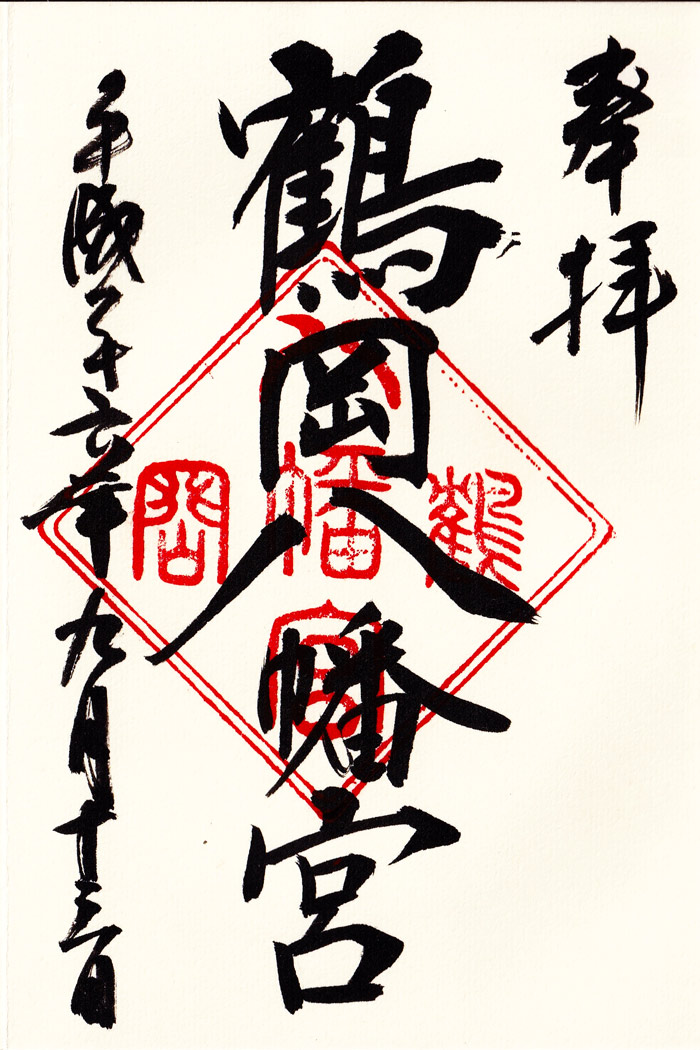 奉拝
鶴岡八幡宮
鶴岡八幡宮
平成二十六年九月十三日